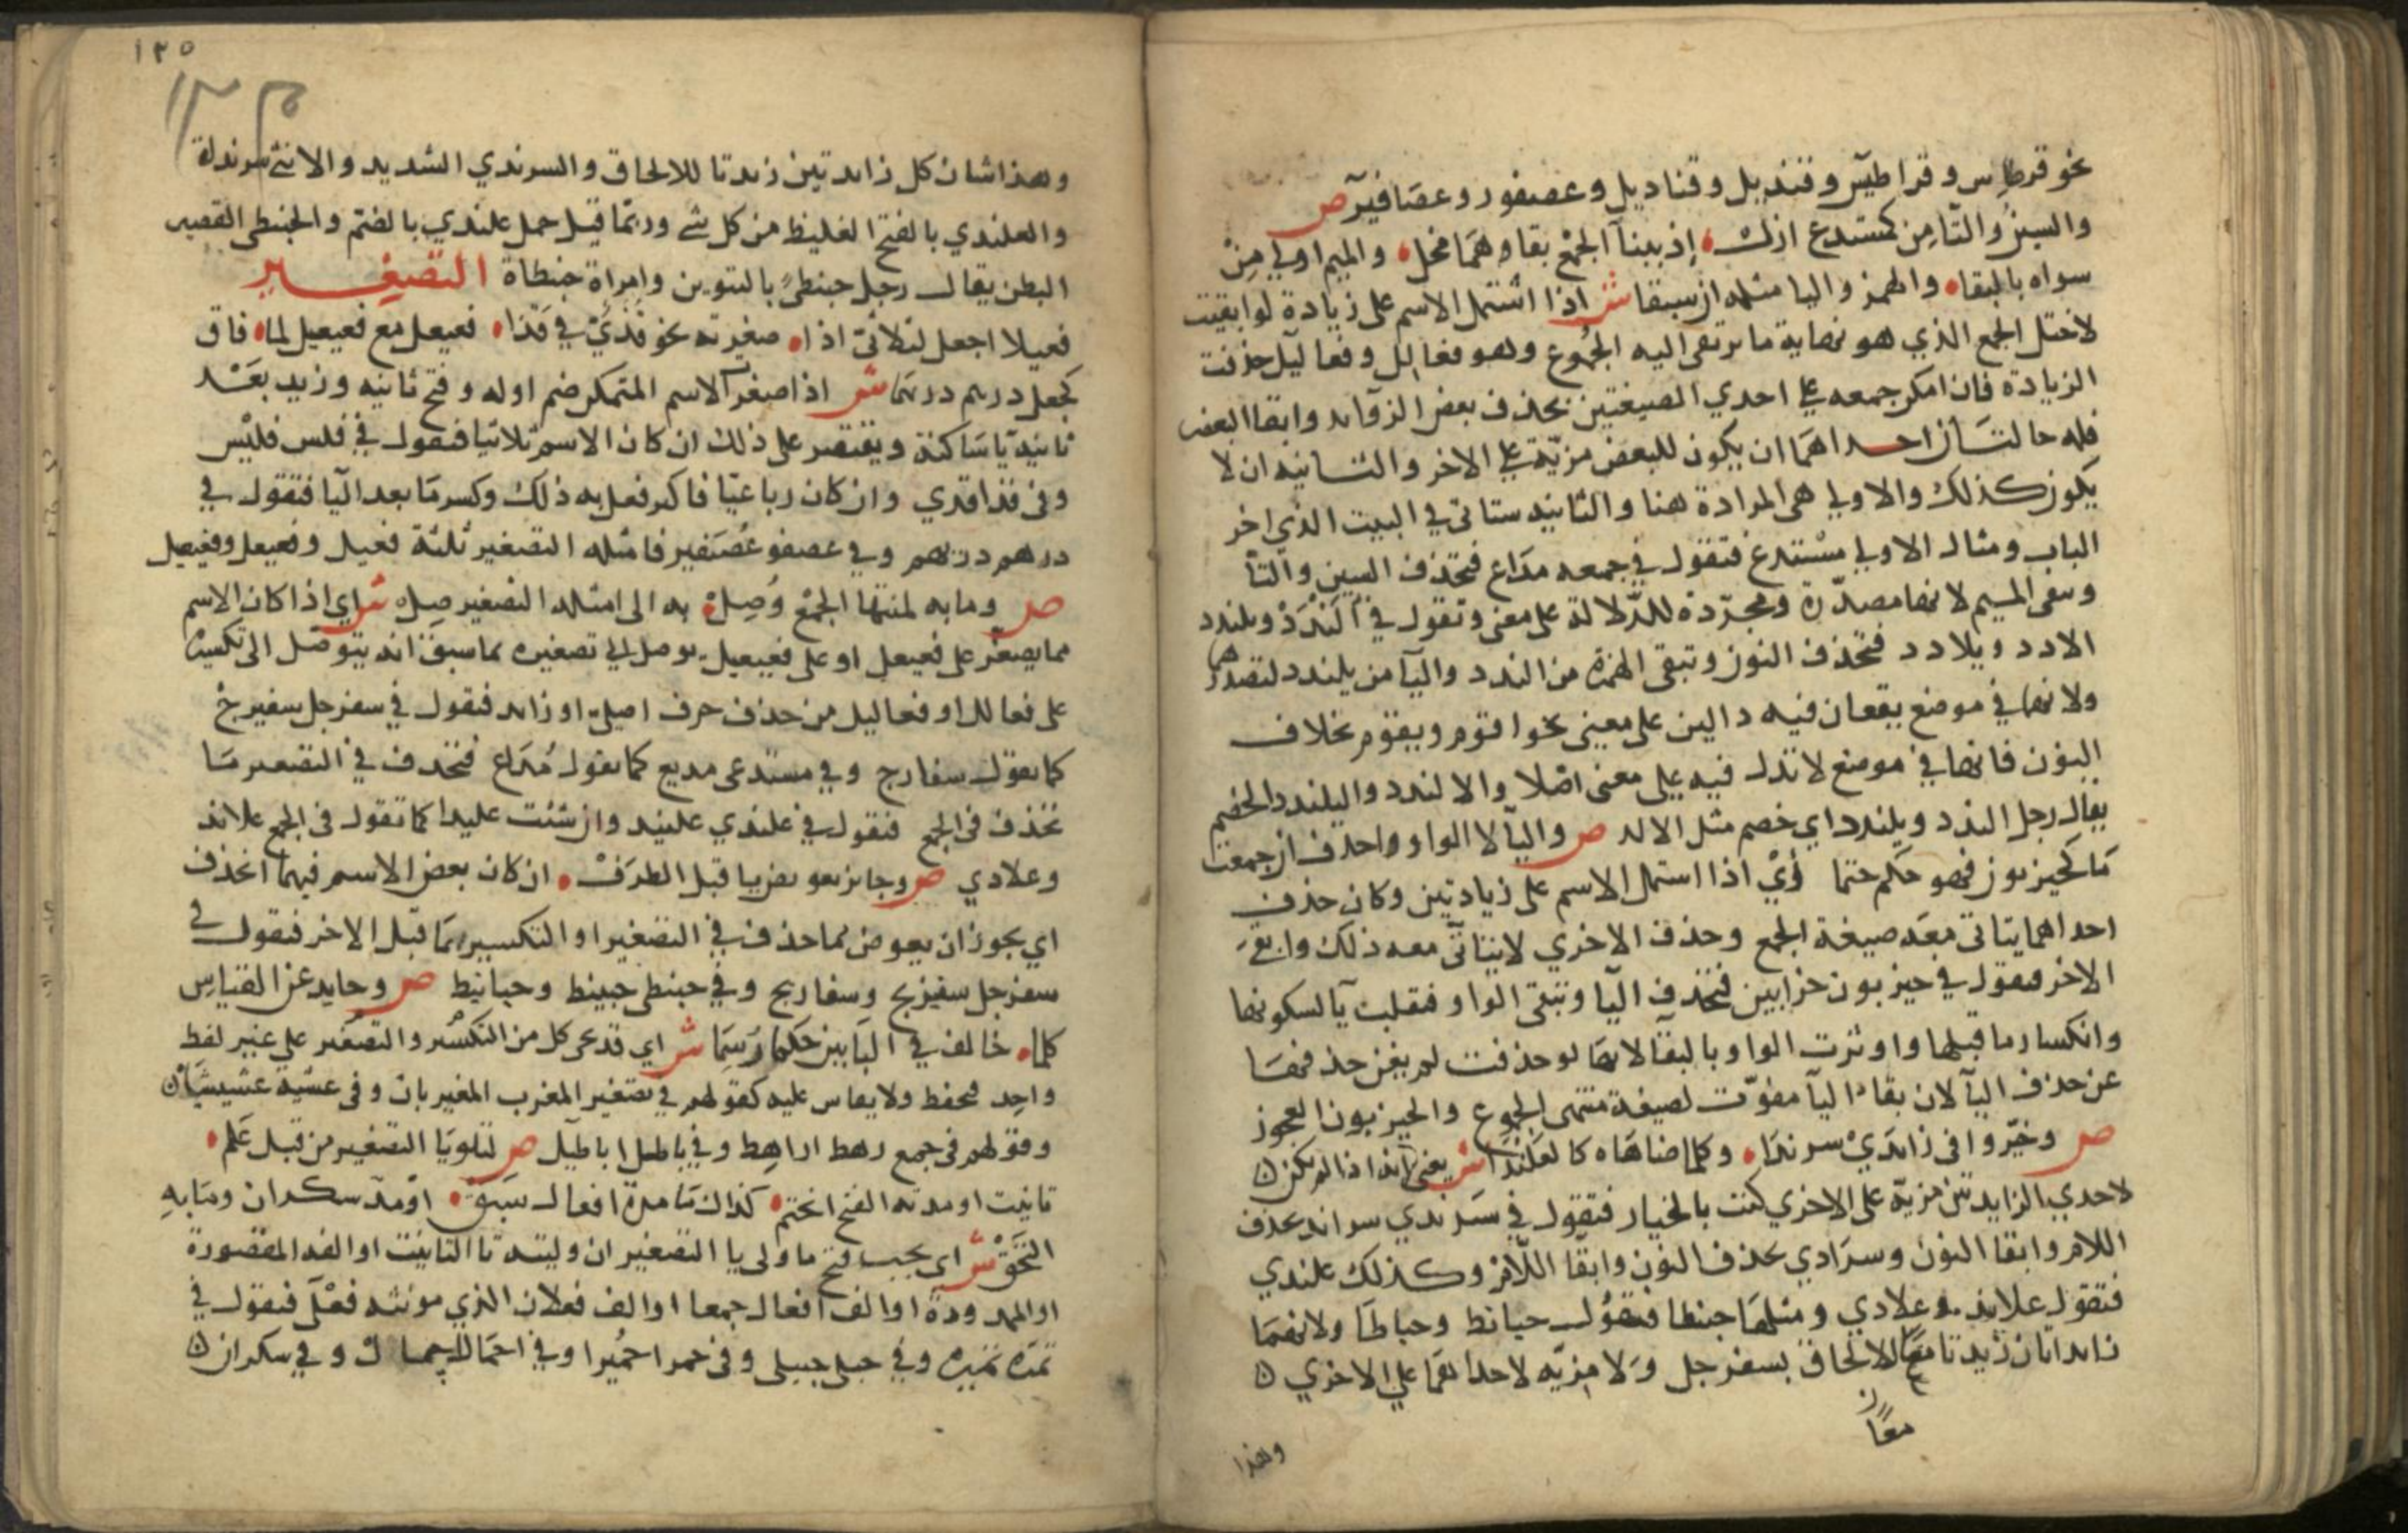 نحو قرطاس وقراطيس وقنديل وقناديل وعصفور وعصافير ص
والسين والتا من كمستدع ازل اذ ببنا الجمع بقاهما مخل والميم اولي من
سواه بالبقاه والهمز واليا مثله ان سبقا ش اذا اشتمل الاسم على زيادة لوابقيت
لاختل الجمع الذي هو نهاية ما يرتقى اليه الجموع وهو فعالل وفعاليل حذفت
الزيادة فان امكن جمعه على احدي الصيغتين بحذف بعض الزوائد وابقا البعض
فله حالتان احداهما ان يكون للبعض مزية على الاخر والثانيه ان لا
يكون كذلك والاولي هي المرادة هنا والثانيه ستاتي في البيت الذي اخر
الباب ومثال الاولي مستدع فتقول في جمعه مداع فتحذف السين والتا
وتبقى الميم لانها مصدرة ومجردة للدلالة على معنى وتقول في الندد ويلندد
الادد ويلادد فتحذف النون وتبقى الهمزة من الندد واليا من يلندد لتصدرهما
ولانهما في موضع يقعان فيه دالين على معنى نحو اقوم ويقوم بخلاف
النون فانها في موضع لا تدل فيه على معنى اصلا والالندد واليلندد الخصم
يقال رجل الندد ويلندد اي خصم مثل الالد ص واليا لا الواو واحذف ان جمعت
ما كحيزبون فهو حكم حتما اي اذا اشتمل الاسم على زيادتين وكان حذف
احداهما يتاتى معه صيغة الجمع وحذف الاخري لا يتاتى معه ذلك وابقى
الاخر فتقول في حيزبون حزابين فتحذف اليا وتبقى الواو فقلبت يآ لسكونها
وانكسار ما قبلها واوثرت الواو بالبقا لانها لو حذفت لم يغن حذفها
عن حذف اليآ لان بقاء اليآ مفوت لصيغة منتهى الجموع والحيزبون العجوز
ص وخيروا في زائدي سرندا وكلما ضاهاه كالعلندا ش يعني انه اذا لم يكن
لاحدي الزايدتين مزية على الاخري كنت بالخيار فتقول في سرندي سراند بحذف
اللام وابقا النون وسرادي بحذف النون وابقا اللام وكذلك علندي
فتقول علاند وعلادي ومثلهما حبنطا فتقول حبانط وحباطا ولانهما
زايدتان زيدتا معا للالحاق بسفرجل ولا مزيه لاحداهما على الاخري
معا
وهذا
١٢٥
وهذا شان كل زائدتين زيدتا للالحاق والسرندي الشديد والانثى سرنداة
والعلندي بالفتح الغليظ من كل شي وربما قيل جمل علندي بالضم والحبنطى القصير
البطن يقال رجل حبنطى بالتنوين وامراة حبنطاة التصغير
فعيلا اجعل لثلاثي اذا صغرته نحو قذي في قذا فعيعل مع فعيعيل لما فاق
كجعل درهم دريهما ش اذا صغر الاسم المتمكن ضم اوله وفتح ثانيه وزيد بعد
ثانيه يا ساكنة ويقتصر على ذلك ان كان الاسم ثلاثيا فتقول في فلس فليس
وفي قذا قذي وان كان رباعيا فاكثر فعل به ذلك وكسر ما بعد اليآ فتقول في
درهم دريهم وفي عصفور عصيفير فامثله التصغير ثلثة فعيل وفعيعل وفعيعيل
ص وما به لمنتها الجمع وصل به الى امثله التصغير صل ش اي اذا كان الاسم
مما يصغر على فعيعل او على فعيعيل يوصل الي تصغيره بما سبق انه يتوصل الى تكسيره
على فعالل او فعاليل من حذف حرف اصلي او زائد فتقول في سفرجل سفيرج
كما تقول سفارج وفي مستدعى مديع كما تقول مداع فتحذف في التصغير ما
تحذف في الجمع فتقول في علندي عليند وان شئت عليدا كما تقول في الجمع علاند
وعلادي ص وجائز تعويض يا قبل الطرف ان كان بعض الاسم فيهما انحذف
اي يجوز ان يعوض مما حذف في التصغير او التكسير يا قبل الاخر فتقول في
سفرجل سفيريج وسفاريج وفي حبنطى حبينيط وحبانيط ص وحايد عن القياس
كلما خالف في البابين حكما رسما ش اي قد يجي كل من التكسير والتصغير على غير لفظ
واحده فيحفظ ولا يقاس عليه كقولهم في تصغير المغرب المغيربان وفي عشيه عشيشيان
وقولهم في جمع رهط اراهط وفي باطل اباطيل ص لتلويا التصغير من قبل علم
تانيث او مدته الفتح انحتم كذاك ما مدة افعال سبق او مد سكران وما به
التحق ش اي يجب فتح ما ولى يا التصغير ان وليته تا التانيث او الفه المقصورة
او الممدودة او الف افعال جمعا او الف فعلان الذي مونثه فعلى فتقول في
تمره تميره وفي حبلى حبيلى وفي حمرا حميرا وفي اجمال اجيمال وفي سكران